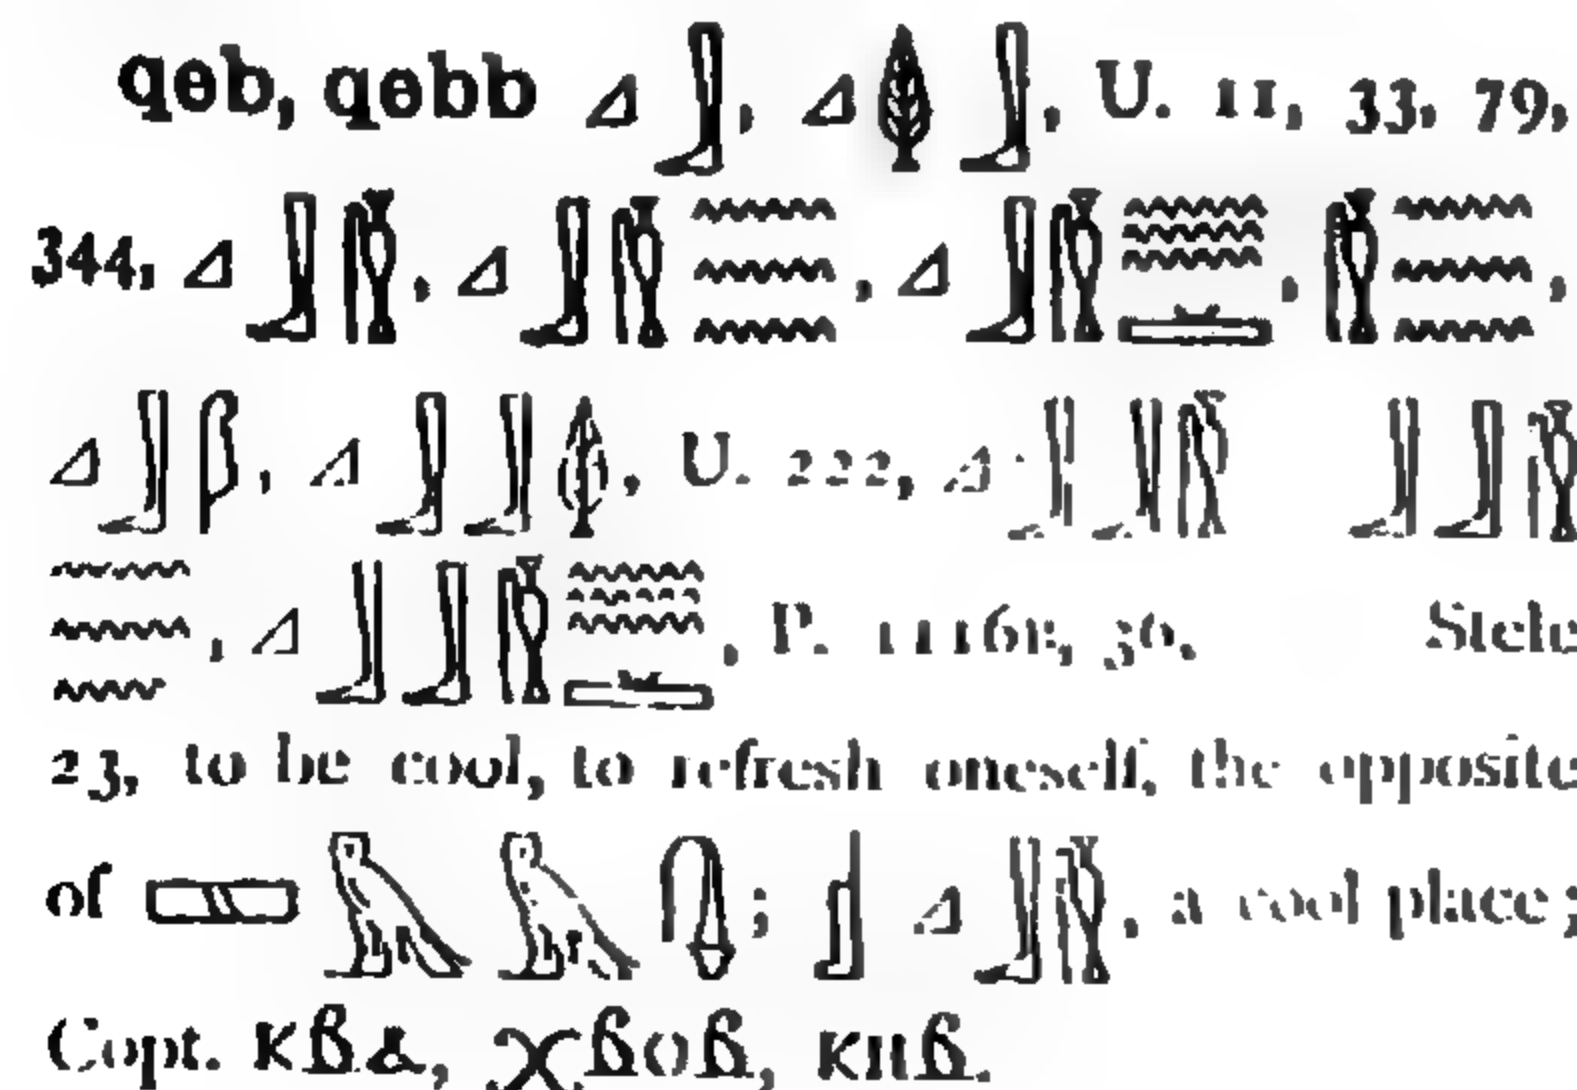 qeb, qebb 𓈎𓃀, 𓈎𓆭𓃀, U. 11, 33, 79,
344, 𓈎𓃀𓏁, 𓈎𓃀𓏁𓈗, 𓈎𓃀𓏁𓈗𓏛, 𓏁𓈗,
𓈎𓃀, 𓈎𓃀𓃀𓆭, U. 222, 𓈎𓃀𓃀𓏁 𓃀𓃀𓏁
𓈗, 𓈎𓃀𓃀𓏁𓈗𓏛, P. 1116B, 30, Stele
23, to be cool, to refresh oneself, the opposite
of 𓈚𓅓𓅓𓊮; 𓊨𓈎𓃀𓏁, a cool place;
Copt. ⲕⲃⲁ, ⲭⲃⲟⲃ, ⲕⲏⲃ.